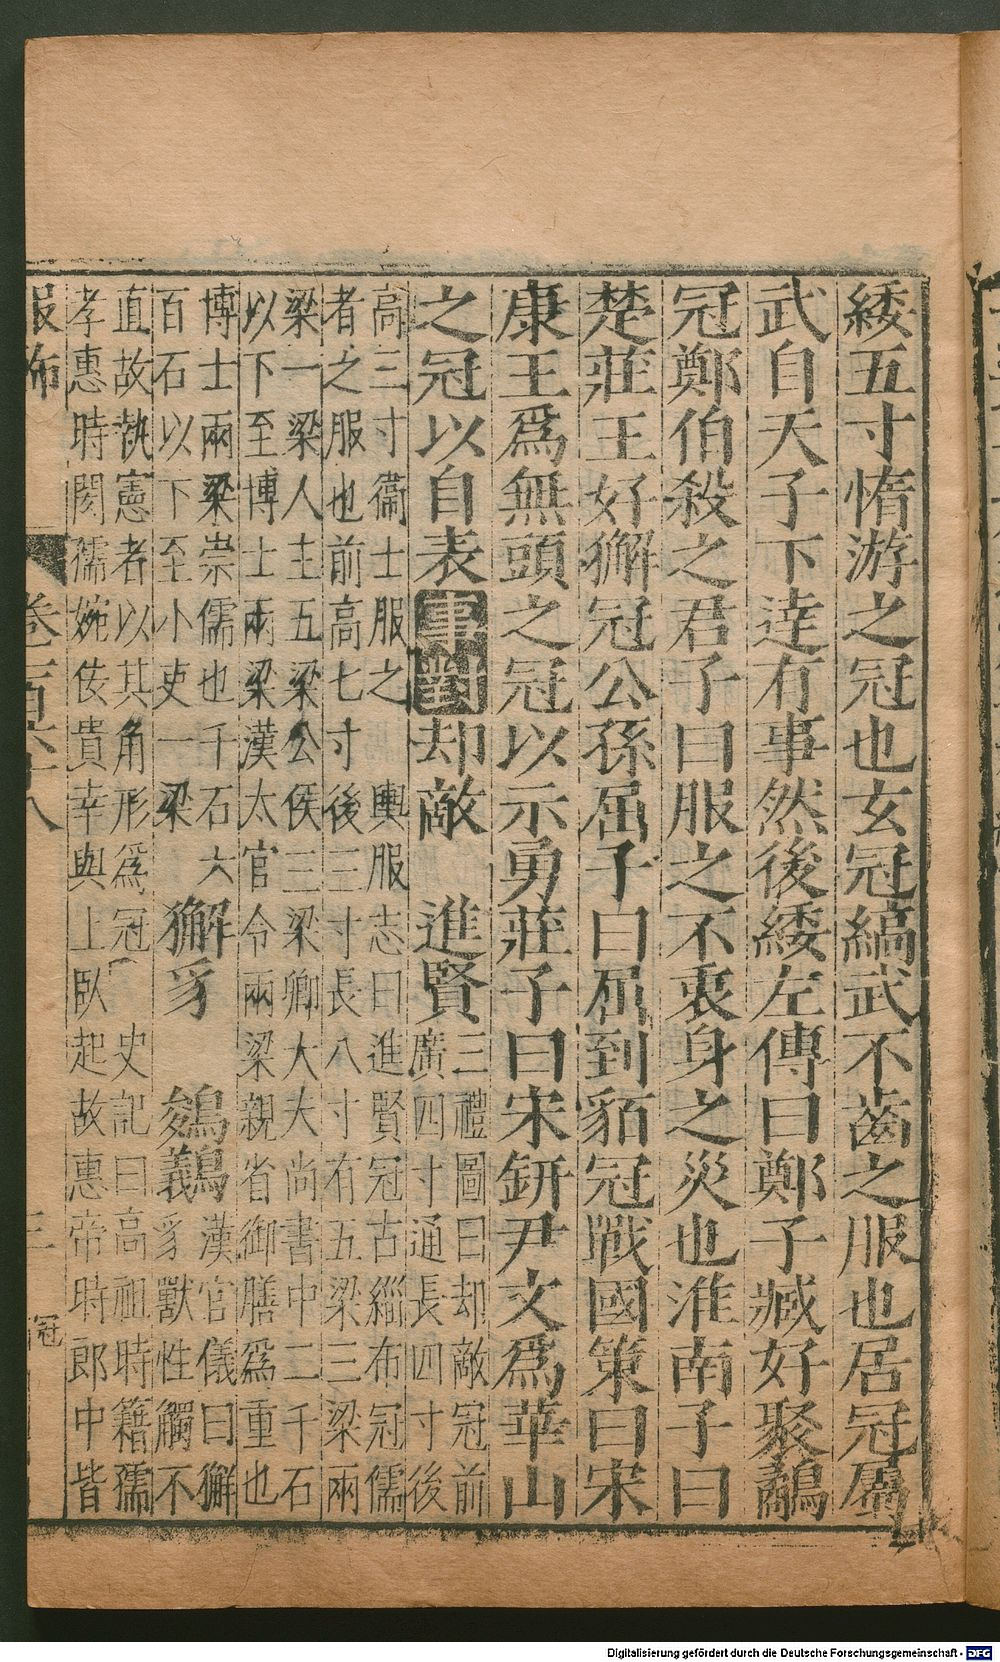 緌五寸惰游之冠也玄冠縞武不齒之服也居冠屬
武自天子下達有事然後緌左傳曰鄭子臧好聚鷸
冠鄭伯殺之君子曰服之不衷身之災也淮南子曰
楚莊王好獬冠公孫屈子曰屈到貊冠戰國策曰宋
康王爲無頭之冠以示勇莊子曰宋鈃尹文爲華山
之冠以自表事對却敵 進賢三禮圖曰却敵冠前
廣四寸通長四寸後
高三寸衞士服之 輿服志曰進賢冠古緇布冠儒
者之服也前高七寸後三寸長八寸有五梁三梁兩
梁一梁人主五梁公侯三梁卿大夫尚書中二千石
以下至博士兩梁漢太官令兩梁親省御膳爲重也
博士兩梁崇儒也千石六
百石以下至小吏一梁
獬豸 鵕鸃漢官儀曰獬
豸獸性觸不
直故執憲者以其角形爲冠 史記曰高祖時籍孺
孝惠時閎孺婉佞貴幸與上臥起故惠帝時郎中皆
服飾 卷一百六十八 三 冠
Digitalisierung gefördert durch die Deutsche Forschungsgemeinschaft - DFG